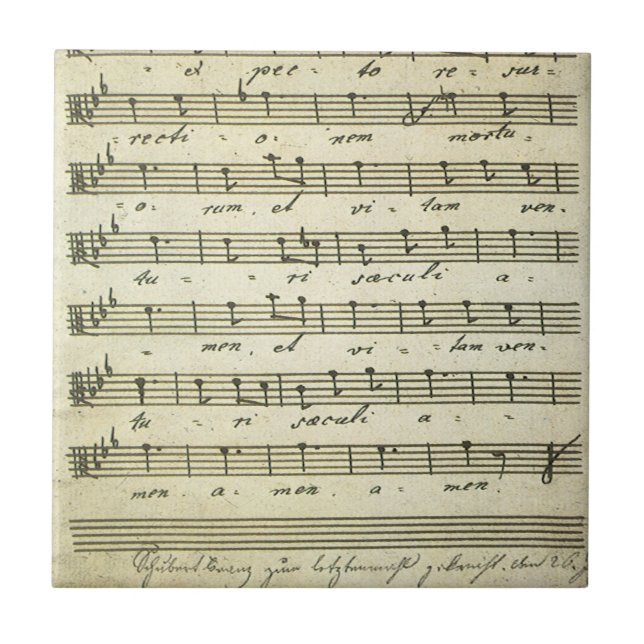 = ex pec = to re = sur=
= recti = o = nem mortu
= o = rum, et vi = tam ven=
tu = = ri sæculi a =
= men, et vi = tam ven=
tu = = ri sæculi a = =
men. a = men. a = men.
Schubert Franz zum letztenmahl gekräht. den 26.